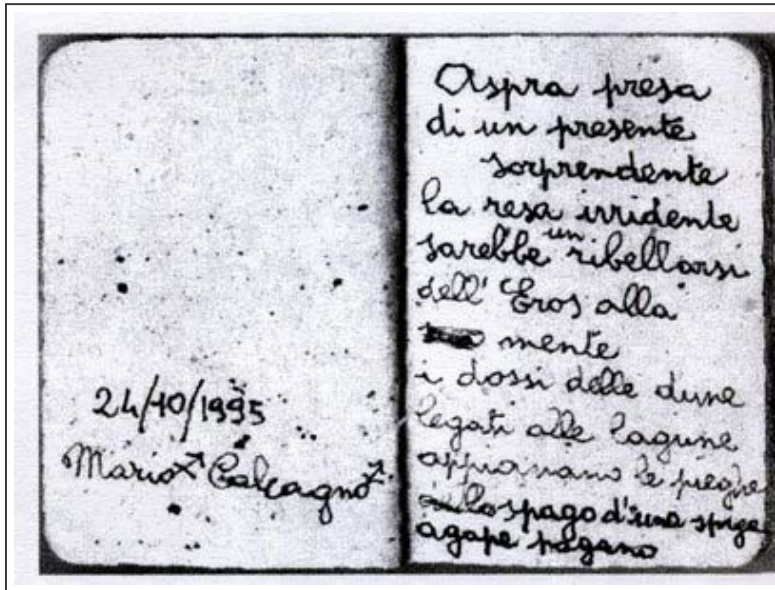 24/10/1995
Mario Calcagno
Aspra presa
di un presente
sorprendente
la resa irridente
sarebbe un ribellarsi
dell' Eros alla
mente
i dossi delle dune
legati alle lagune
appianano le pieghe
lo spago d'una spiga
agape pagano